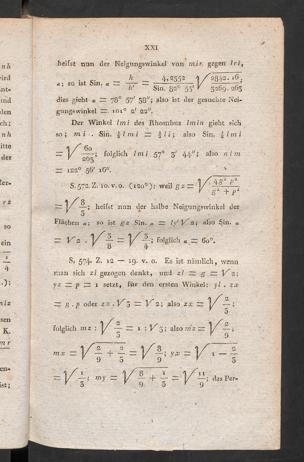 XXI
heifst nun der Neigungswinkel von mir gegen lri,
α; so ist Sin. α = h/h' = 4,2352/Sin. 82° 55' √2842.16/3269.263;
dies giebt α = 78° 57' 58"; also ist der gesuchte Nei-
gungswinkel = 101° 2' 22".
Der Winkel lmi des Rhombus lmin giebt sich
so; mi . Sin. ½ lmi = ½ li; also Sin. ½ lmi
= √60/263; folglich lmi 57° 3' 44"; also nim
= 122° 56' 16".
S. 572. Z. 10. v. o. (120°): weil gz = √4g² p²/g² + p²
= √8/3; heifst nun der halbe Neigungswinkel der
Flächen α; so ist gz Sin. α =
= √2 . √3/8 = √3/4; folglich α = 60°.
S. 574. Z. 12 — 19. v. o. Es ist nämlich, wenn
man sich zl gezogen denkt, und zl = g = √2;
yz = p = 1 setzt, für den ersten Winkel: yl . zx
= g . p oder zx . √3 = √2; also zx = √2/3;
folglich mz : √2/3 = 1 : √3; also mz = √2/9,
mx = √2/9 + 2/3 = √8/9; yx = √1 — 2/3
= √1/3; my = √8/9 + 1/3 = √11/9; das Per-